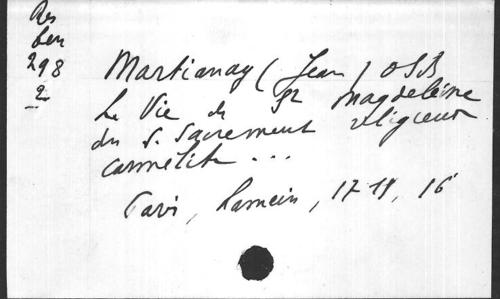 Res
ben
298
2
Martianay (Jean) OSB
La Vie de Sr Magdeleine
du S. Sacrement religieuse
carmélite ...
Paris, Lamein, 1711, 16